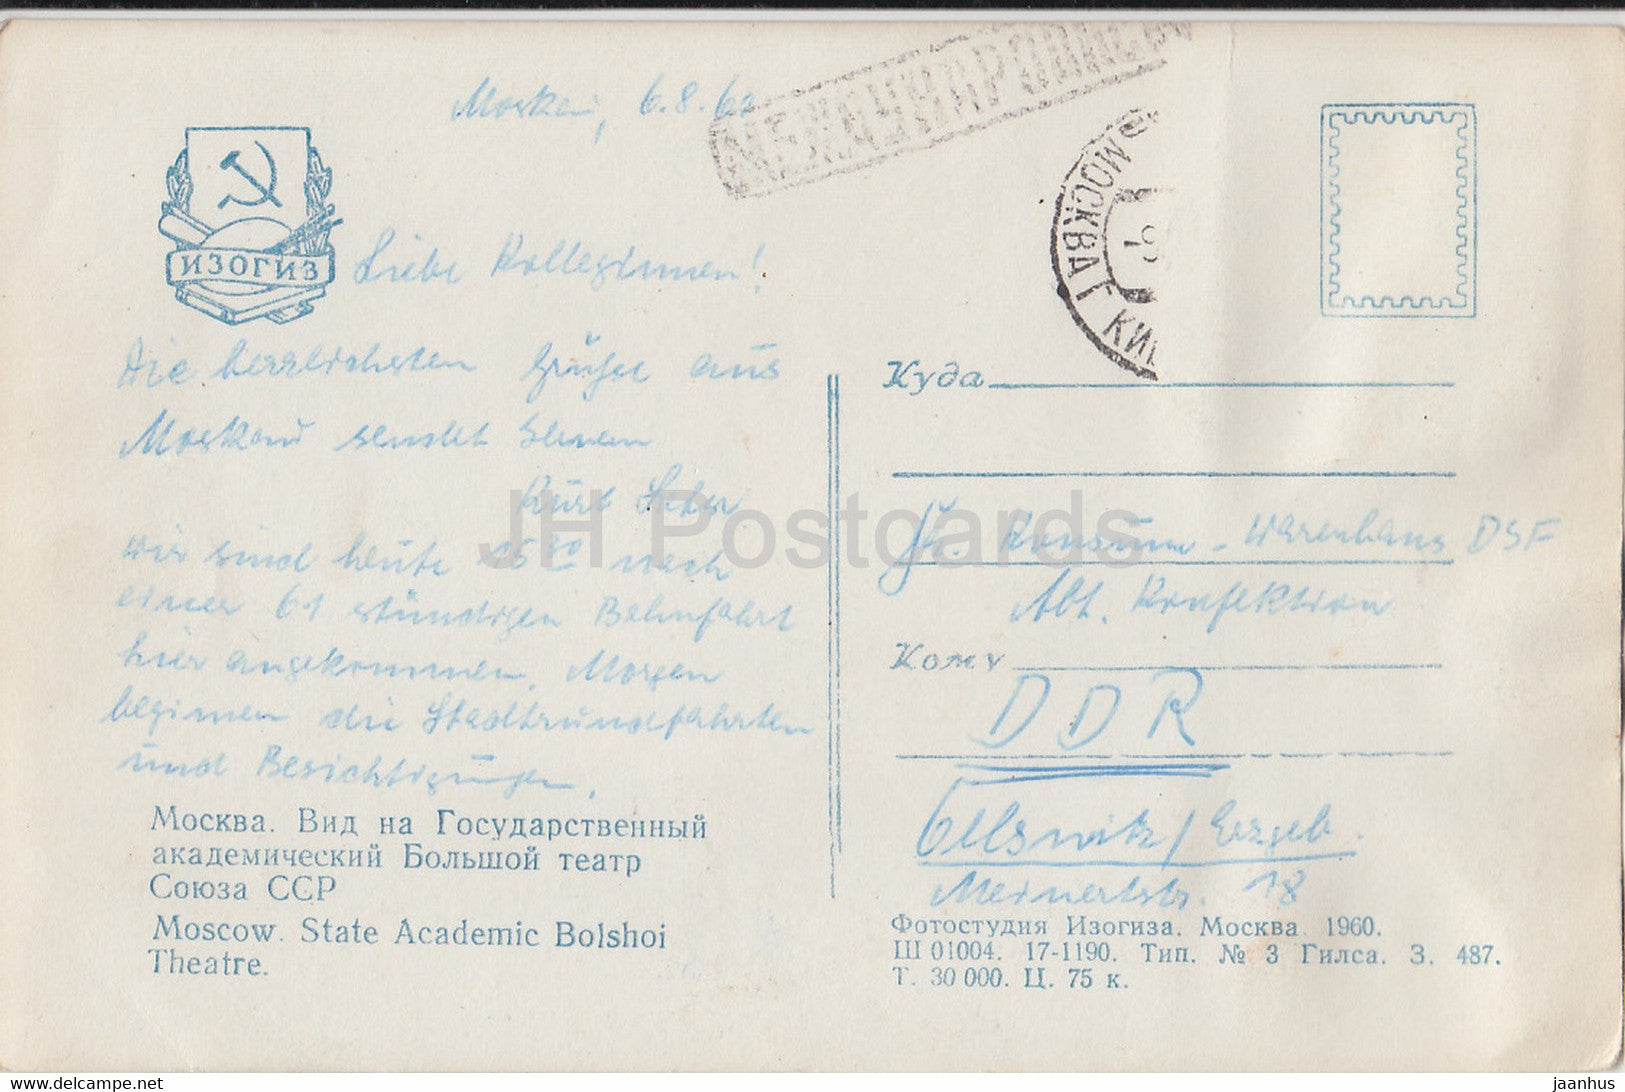 Moskau, 6.8.60
МЕЖДУНАРОДНОЕ
МОСКВА Г
ИЗОГИЗ
Liebe Kolleginnen!
Die herzlichsten Grüße aus
Moskau sendet Ihnen
Kurt
Wir sind heute 15 30 nach
einer 61 stündigen Bahnfahrt
hier angekommen. Morgen
beginnen die Stadtrundfahrten
und Besichtigungen.
Москва. Вид на Государственный
академический Большой театр
Союза ССР
Moscow. State Academic Bolshoi
Theatre.
Куда
Konsum-Warenhaus DSF
Abt. Konfektion
Кому
DDR
Oelsnitz/Erzgeb.
Meinertstr. 18
Фотостудия Изогиза. Москва 1960.
Ш 01004. 17-1190. Тип. № 3 Гилса. З. 487.
Т. 30 000. Ц. 75 к.
JH Postcards
jaanhus @ delcampe.net